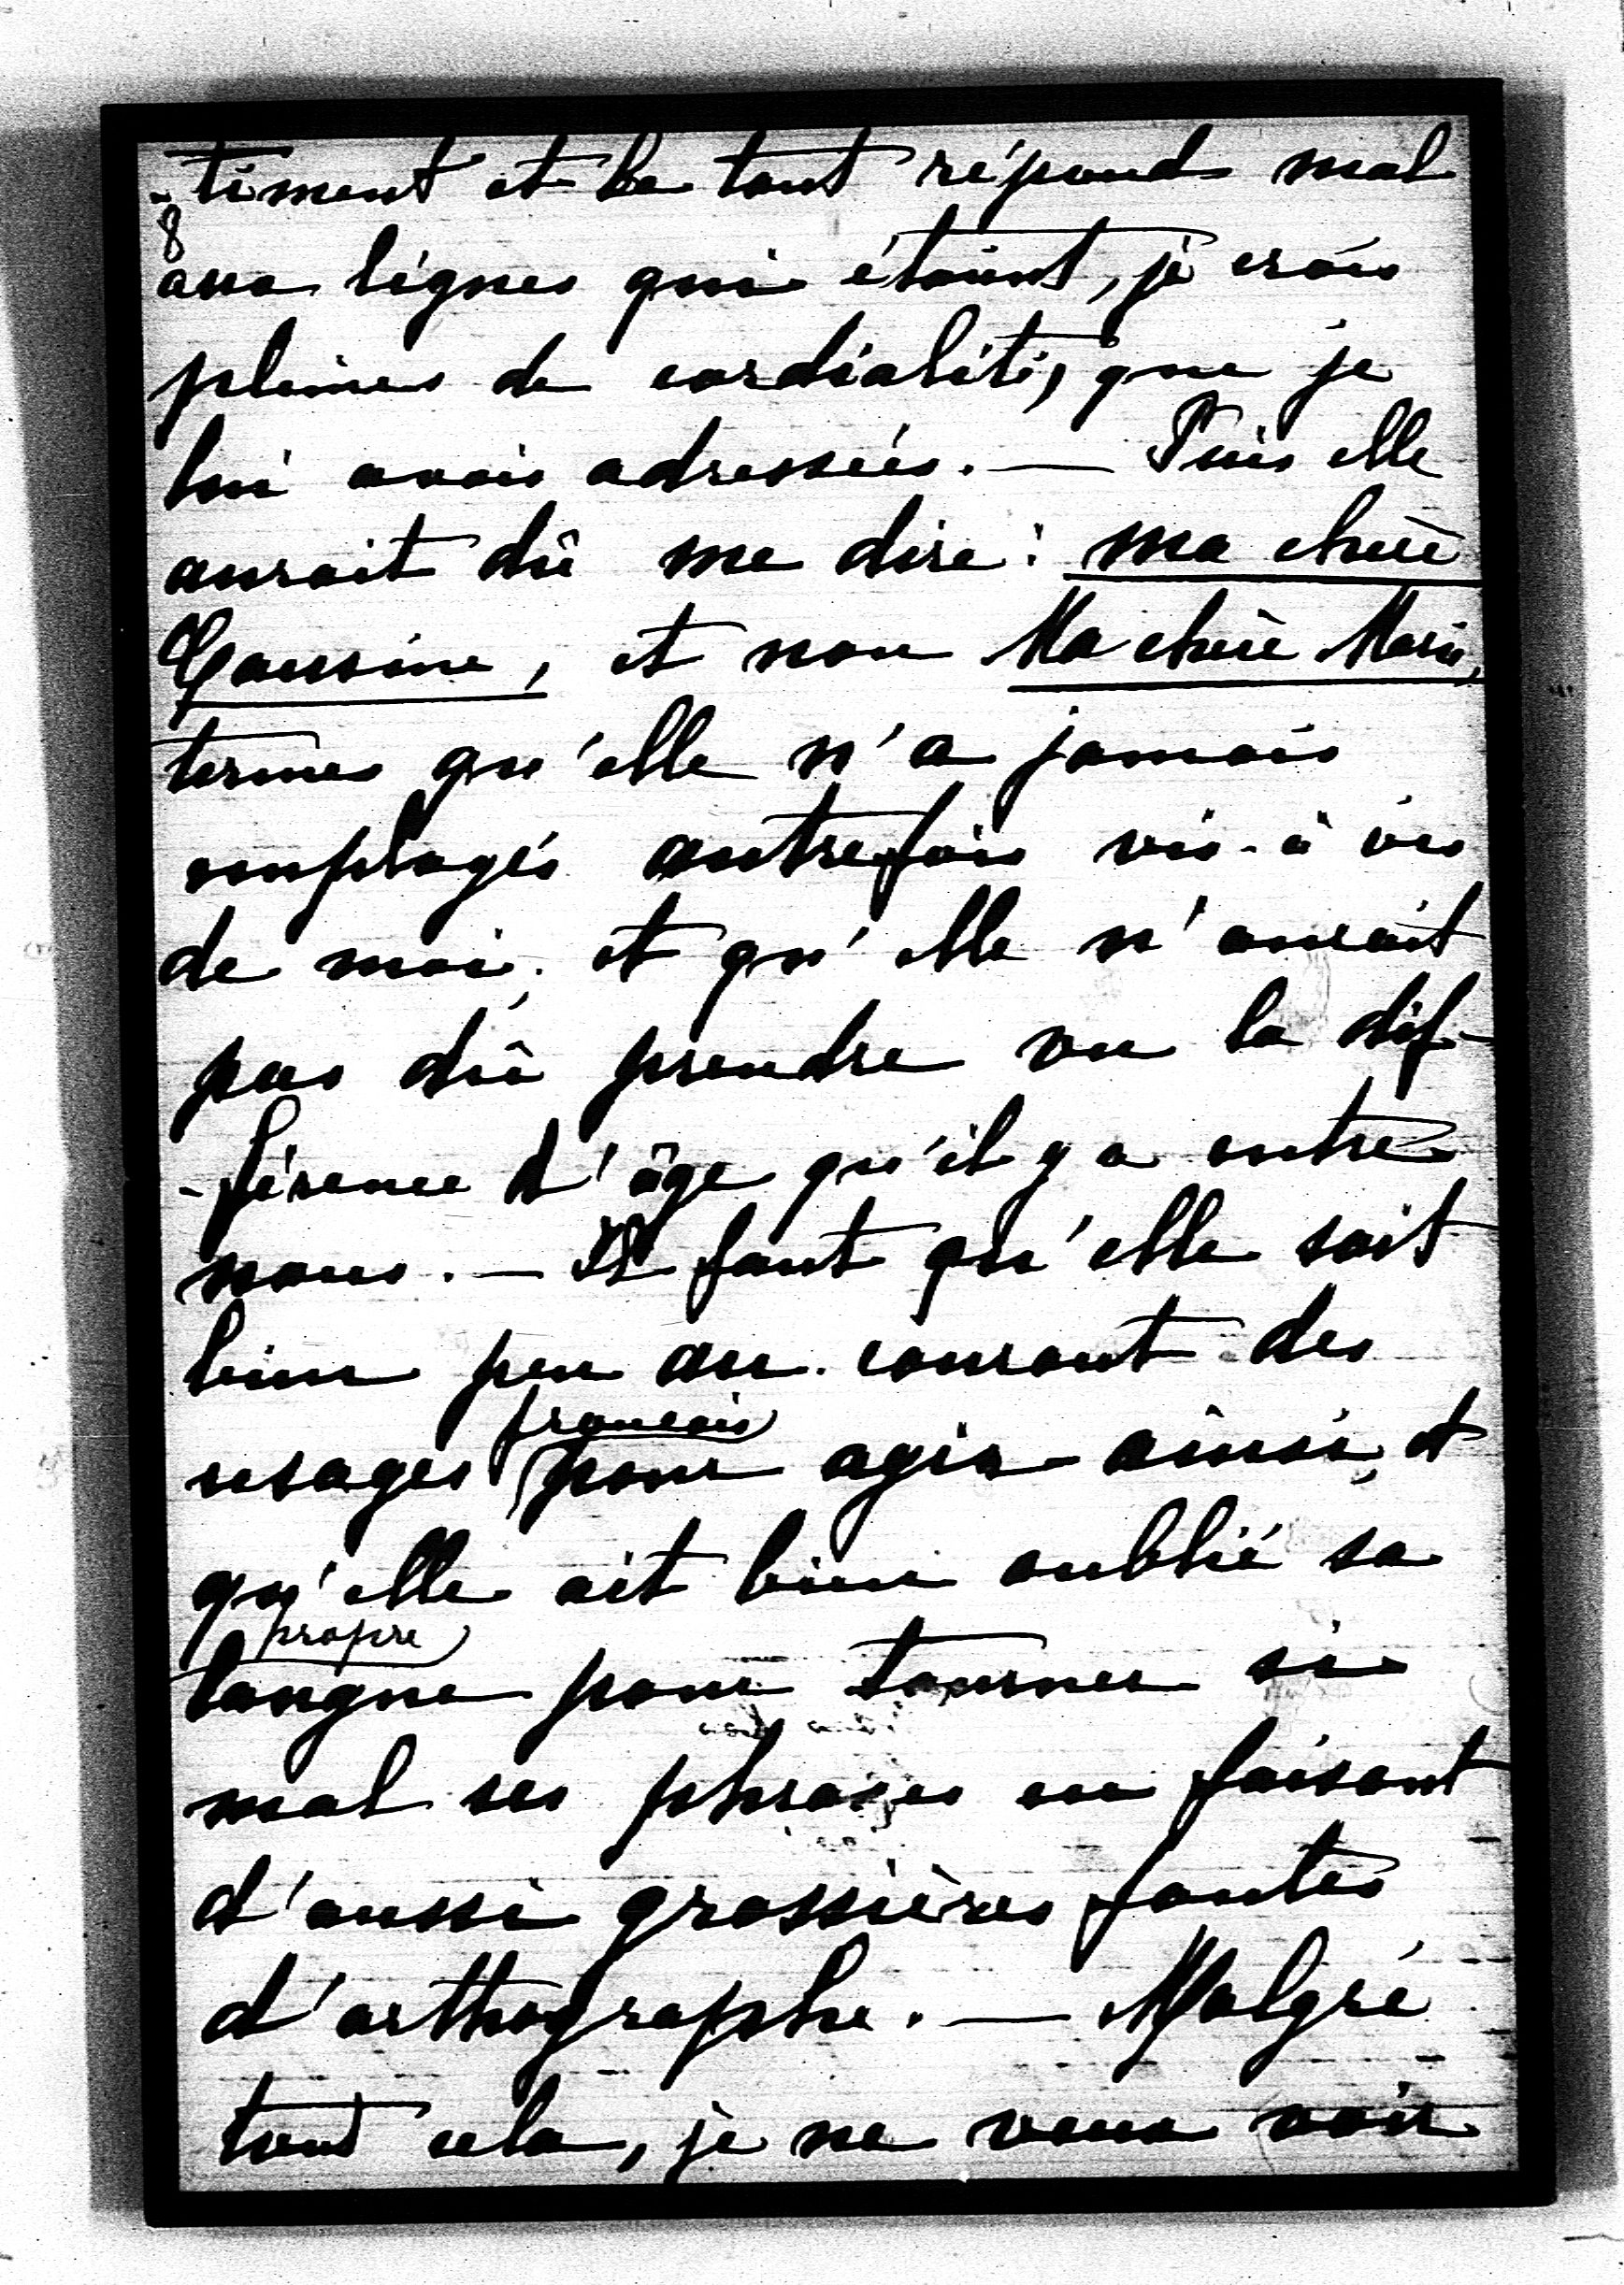 -timent et le tout répond mal
8
aux lignes qui étaient, je crois
pleines de cordialité, que je
lui avais adressées. — Puis elle
aurait dû me dire : ma chère
Cousine, et non Ma chère Marie,
termes qu'elle n'a jamais
employés autrefois vis-à vis
de moi, et qu'elle n'aurait
pas dû prendre vu la dif-
-férence d'âge qu'il y a entre
nous. — Il faut qu'elle soit
bien peu au courant des
français
usages pour agir ainsi, et
qu'elle ait bien oublié sa
propre
langue pour tourner si
mal ses phrases en faisant
d'aussi grossières fautes
d'orthographe. — Malgré
tout cela, je ne veux voir